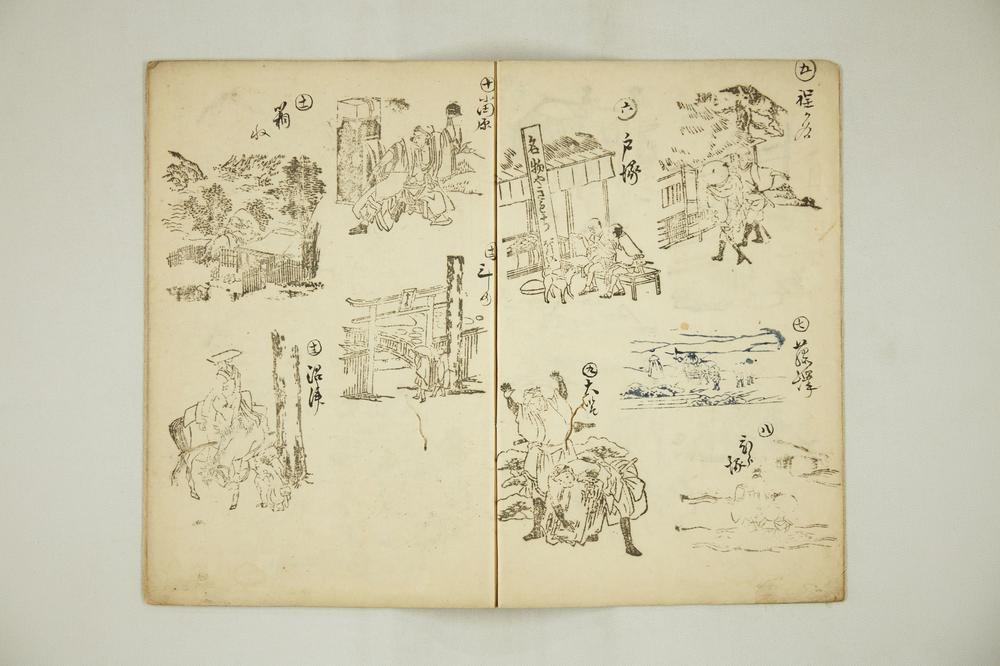 五
程ヶ谷
六
戸塚
名物やきもち
七
藤澤
八
平塚
九
大磯
十
小田原
十一
箱
十二
三しま
十三
沼津